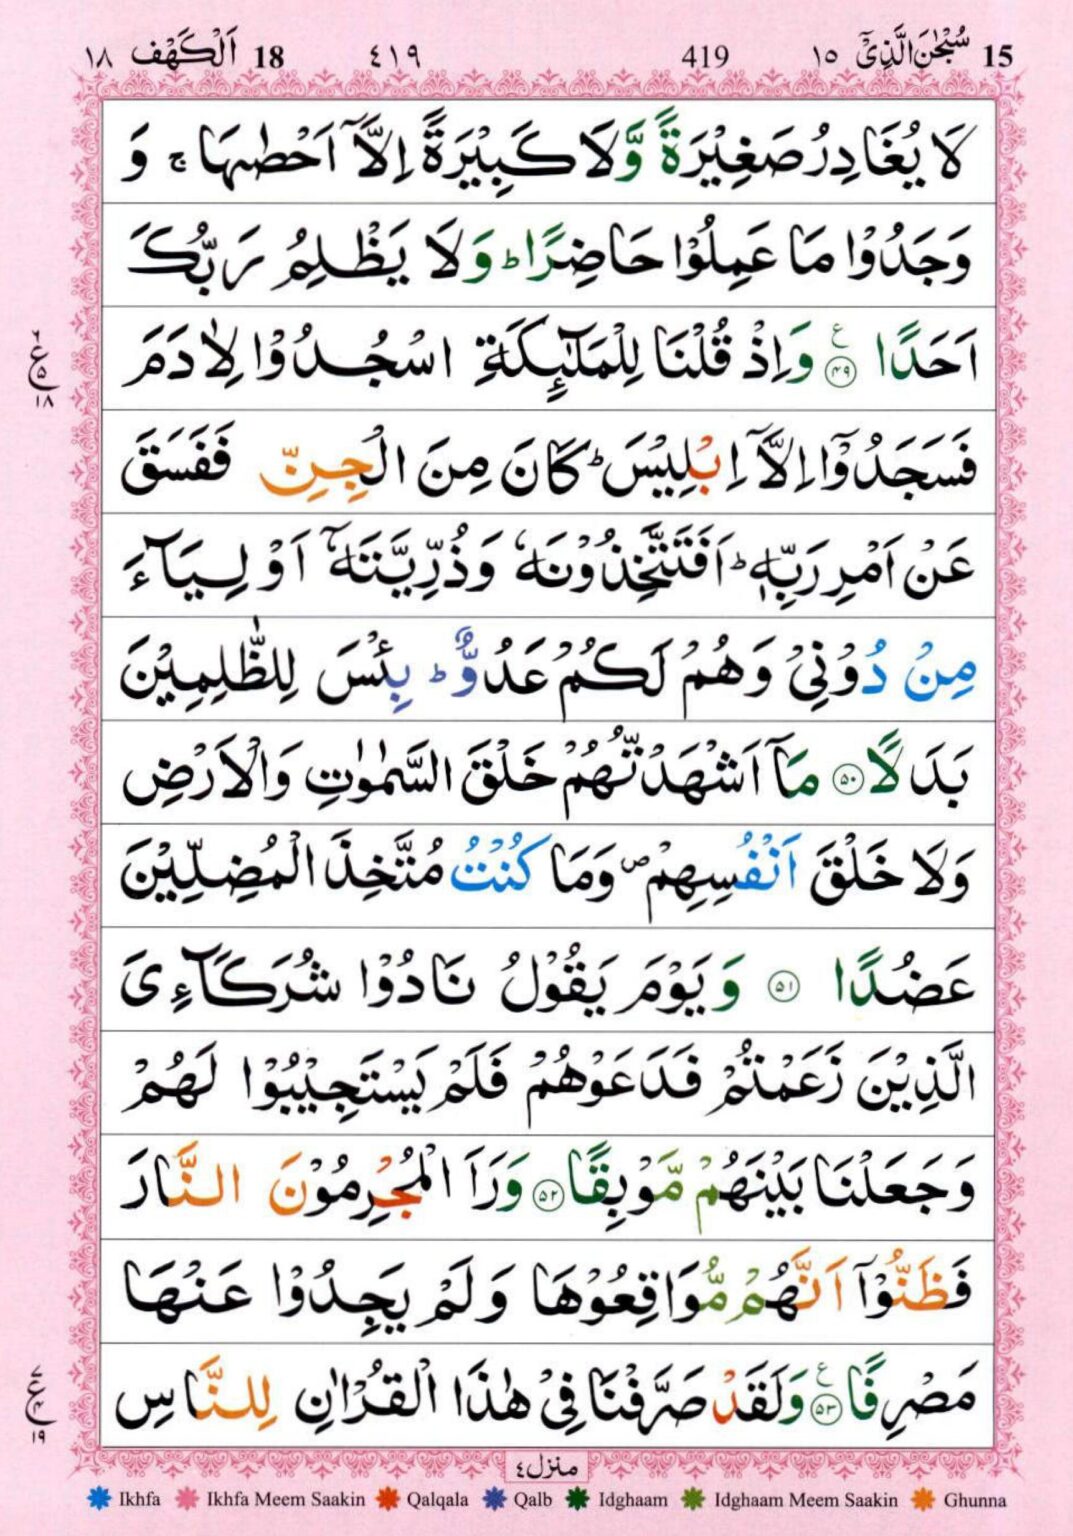 ١٨ اَلْكَهْف 18 ٤١٩ 419 سُبْحٰنَ الَّذِىْٓ ١٥ 15
لَا يُغَادِرُ صَغِيْرَةً وَّلَا كَبِيْرَةً اِلَّاۤ اَحْصٰٮهَا ۚ وَ
وَجَدُوْا مَا عَمِلُوْا حَاضِرًا ؕ وَلَا يَظْلِمُ رَبُّكَ
اَحَدًا ﴿٤٩﴾ وَاِذْ قُلْنَا لِلْمَلٰٓئِكَةِ اسْجُدُوْا لِاٰدَمَ
فَسَجَدُوْۤا اِلَّاۤ اِبْلِيْسَ ؕ كَانَ مِنَ الْجِنِّ فَفَسَقَ
عَنْ اَمْرِ رَبِّهٖ ؕ اَفَتَتَّخِذُوْنَهٗ وَذُرِّيَّتَهٗۤ اَوْلِيَآءَ
مِنْ دُوْنِىْ وَهُمْ لَكُمْ عَدُوٌّ ؕ بِئْسَ لِلظّٰلِمِيْنَ
بَدَلًا ﴿٥٠﴾ مَاۤ اَشْهَدْتُّهُمْ خَلْقَ السَّمٰوٰتِ وَالْاَرْضِ
وَلَا خَلْقَ اَنْفُسِهِمْ ۖ وَمَا كُنْتُ مُتَّخِذَ الْمُضِلِّيْنَ
عَضُدًا ﴿٥١﴾ وَيَوْمَ يَقُوْلُ نَادُوْا شُرَكَآءِىَ
الَّذِيْنَ زَعَمْتُمْ فَدَعَوْهُمْ فَلَمْ يَسْتَجِيْبُوْا لَهُمْ
وَجَعَلْنَا بَيْنَهُمْ مَّوْبِقًا ﴿٥٢﴾ وَرَاَ الْمُجْرِمُوْنَ النَّارَ
فَظَنُّوْۤا اَنَّهُمْ مُّوَاقِعُوْهَا وَلَمْ يَجِدُوْا عَنْهَا
مَصْرِفًا ﴿٥٣﴾ وَلَقَدْ صَرَّفْنَا فِىْ هٰذَا الْقُرْاٰنِ لِلنَّاسِ
ع
٥
١٨
ع
١٩
منزل٤
Ikhfa Ikhfa Meem Saakin Qalqala Qalb Idghaam Idghaam Meem Saakin Ghunna